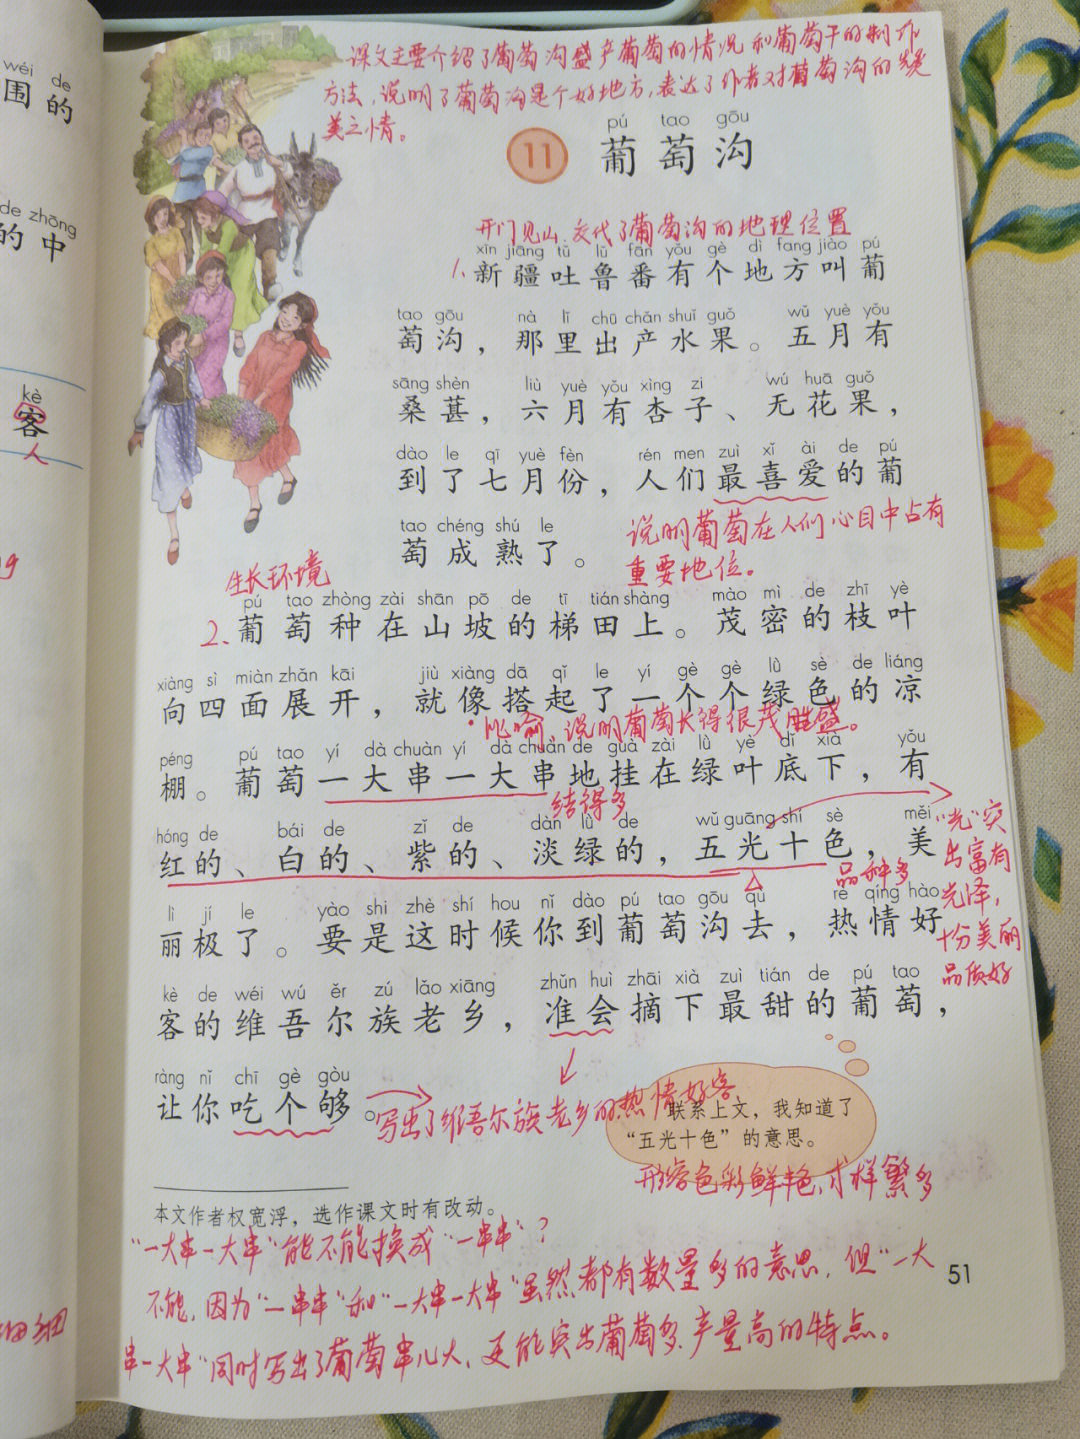 wéi de
围 的
de zhōng
的 中
kè
客
人
细细
课文主要介绍了葡萄沟盛产葡萄的情况和葡萄干的制作
方法，说明了葡萄沟是个好地方，表达了作者对葡萄沟的赞
美之情。
pú tao gōu
11 葡萄沟
开门见山、交代了葡萄沟的地理位置
xīn jiāng tǔ lǔ fān yǒu gè dì fang jiào pú
1、新疆吐鲁番有个地方叫葡
tao gōu nà lǐ chū chǎn shuǐ guǒ wǔ yuè yǒu
萄沟，那里出产水果。五月有
sāng shèn liù yuè yǒu xìng zi wú huā guǒ
桑葚，六月有杏子、无花果，
dào le qī yuè fèn rén men zuì xǐ ài de pú
到了七月份，人们最喜爱的葡
tao chéng shú le
萄成熟了。
说明葡萄在人们心目中占有
重要地位。
生长环境
pú tao zhòng zài shān pō de tī tián shàng mào mì de zhī yè
2、葡萄种在山坡的梯田上。茂密的枝叶
xiàng sì miàn zhǎn kāi jiù xiàng dā qǐ le yí gè gè lǜ sè de liáng
向四面展开，就像搭起了一个个绿色的凉
比喻，说明葡萄长得很茂盛。
péng pú tao yí dà chuàn yí dà chuàn de guà zài lǜ yè dǐ xià yǒu
棚。葡萄一大串一大串地挂在绿叶底下，有
结得多
hóng de bái de zǐ de dàn lǜ de wǔ guāng shí sè měi
红的、白的、紫的、淡绿的，五光十色，美
品种多
“光”突
出富有
光泽，
十分美丽
品质好
lì jí le yào shi zhè shí hou nǐ dào pú tao gōu qù rè qíng hào
丽极了。要是这时候你到葡萄沟去，热情好
kè de wéi wú ěr zú lǎo xiāng zhǔn huì zhāi xià zuì tián de pú tao
客的维吾尔族老乡，准会摘下最甜的葡萄，
ràng nǐ chī gè gòu
让你吃个够。
写出了维吾尔族老乡的热情好客
联系上文，我知道了
“五光十色”的意思。
形容色彩鲜艳，式样繁多
本文作者权宽浮，选作课文时有改动。
“一大串一大串”能不能换成“一串串”？
不能，因为“一串串”和“一大串一大串”虽然都有数量多的意思，但“一大
串一大串”同时写出了葡萄串儿大，更能突出葡萄多、产量高的特点。
51